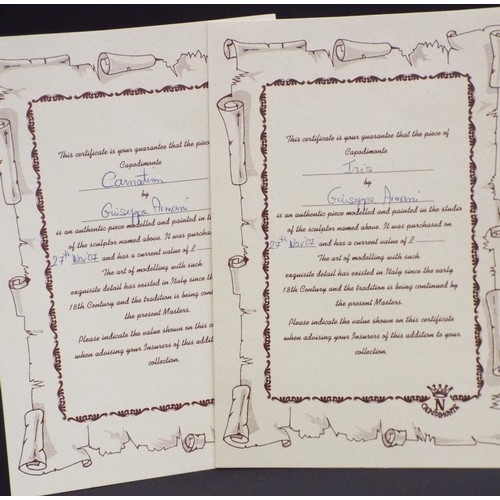 This certificate is your guarantee that the piece
Capodimonte
Carnation
by
Guiseppe Armani
is an authentic piece modelled and painted in t
of the sculptor named above. It was purchas
27th Nov 07 and has a current value of £
The art of modelling with such
exquisite detail has existed in Italy since th
18th Century and the tradition is being contin
the present Masters.
Please indicate the value shown on this c
when advising your Insurers of this addit
collection.
This certificate is your guarantee that the piece of
Capodimonte
Iris
by
Guiseppe Armani
is an authentic piece modelled and painted in the studio
of the sculptor named above. It was purchased on
27th Nov 07 and has a current value of £
The art of modelling with such
exquisite detail has existed in Italy since the early
18th Century and the tradition is being continued by
the present Masters.
Please indicate the value shown on this certificate
when advising your Insurers of this addition to your
collection.
N
CAPODIMONTE